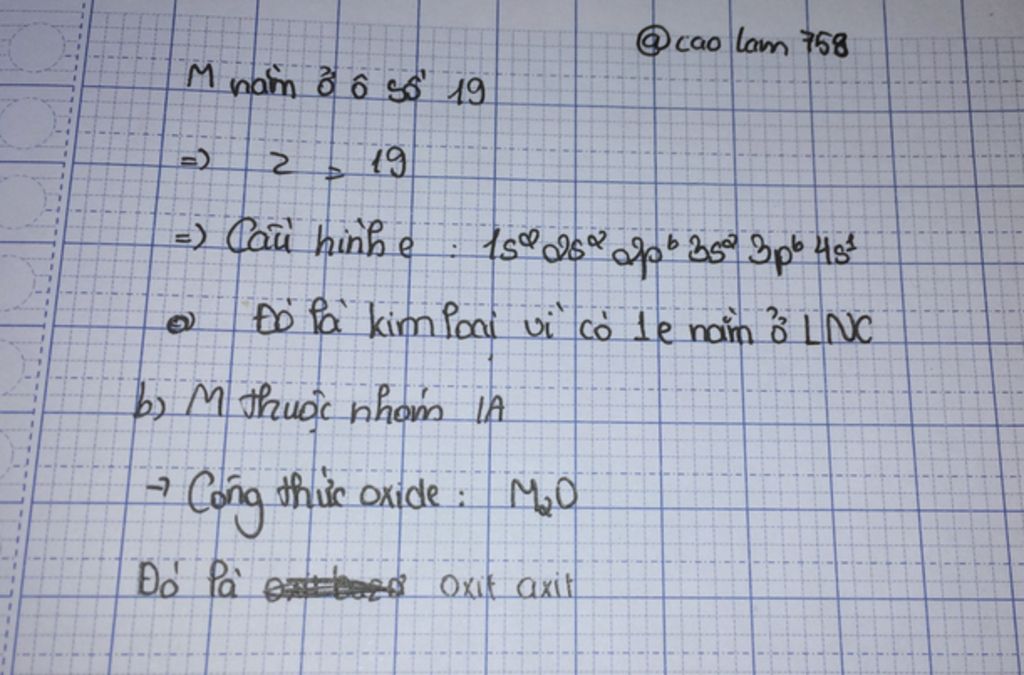 @cao lam 758
M nằm ở ô số 19
=> Z = 19
=> Cấu hình e : 1s² 2s² 2p⁶ 3s² 3p⁶ 4s¹
=> Đó là kim loại vì có 1e nằm ở LNC
b) M thuộc nhóm IA
→ Công thức oxide : M₂O
Đó là oxit axit